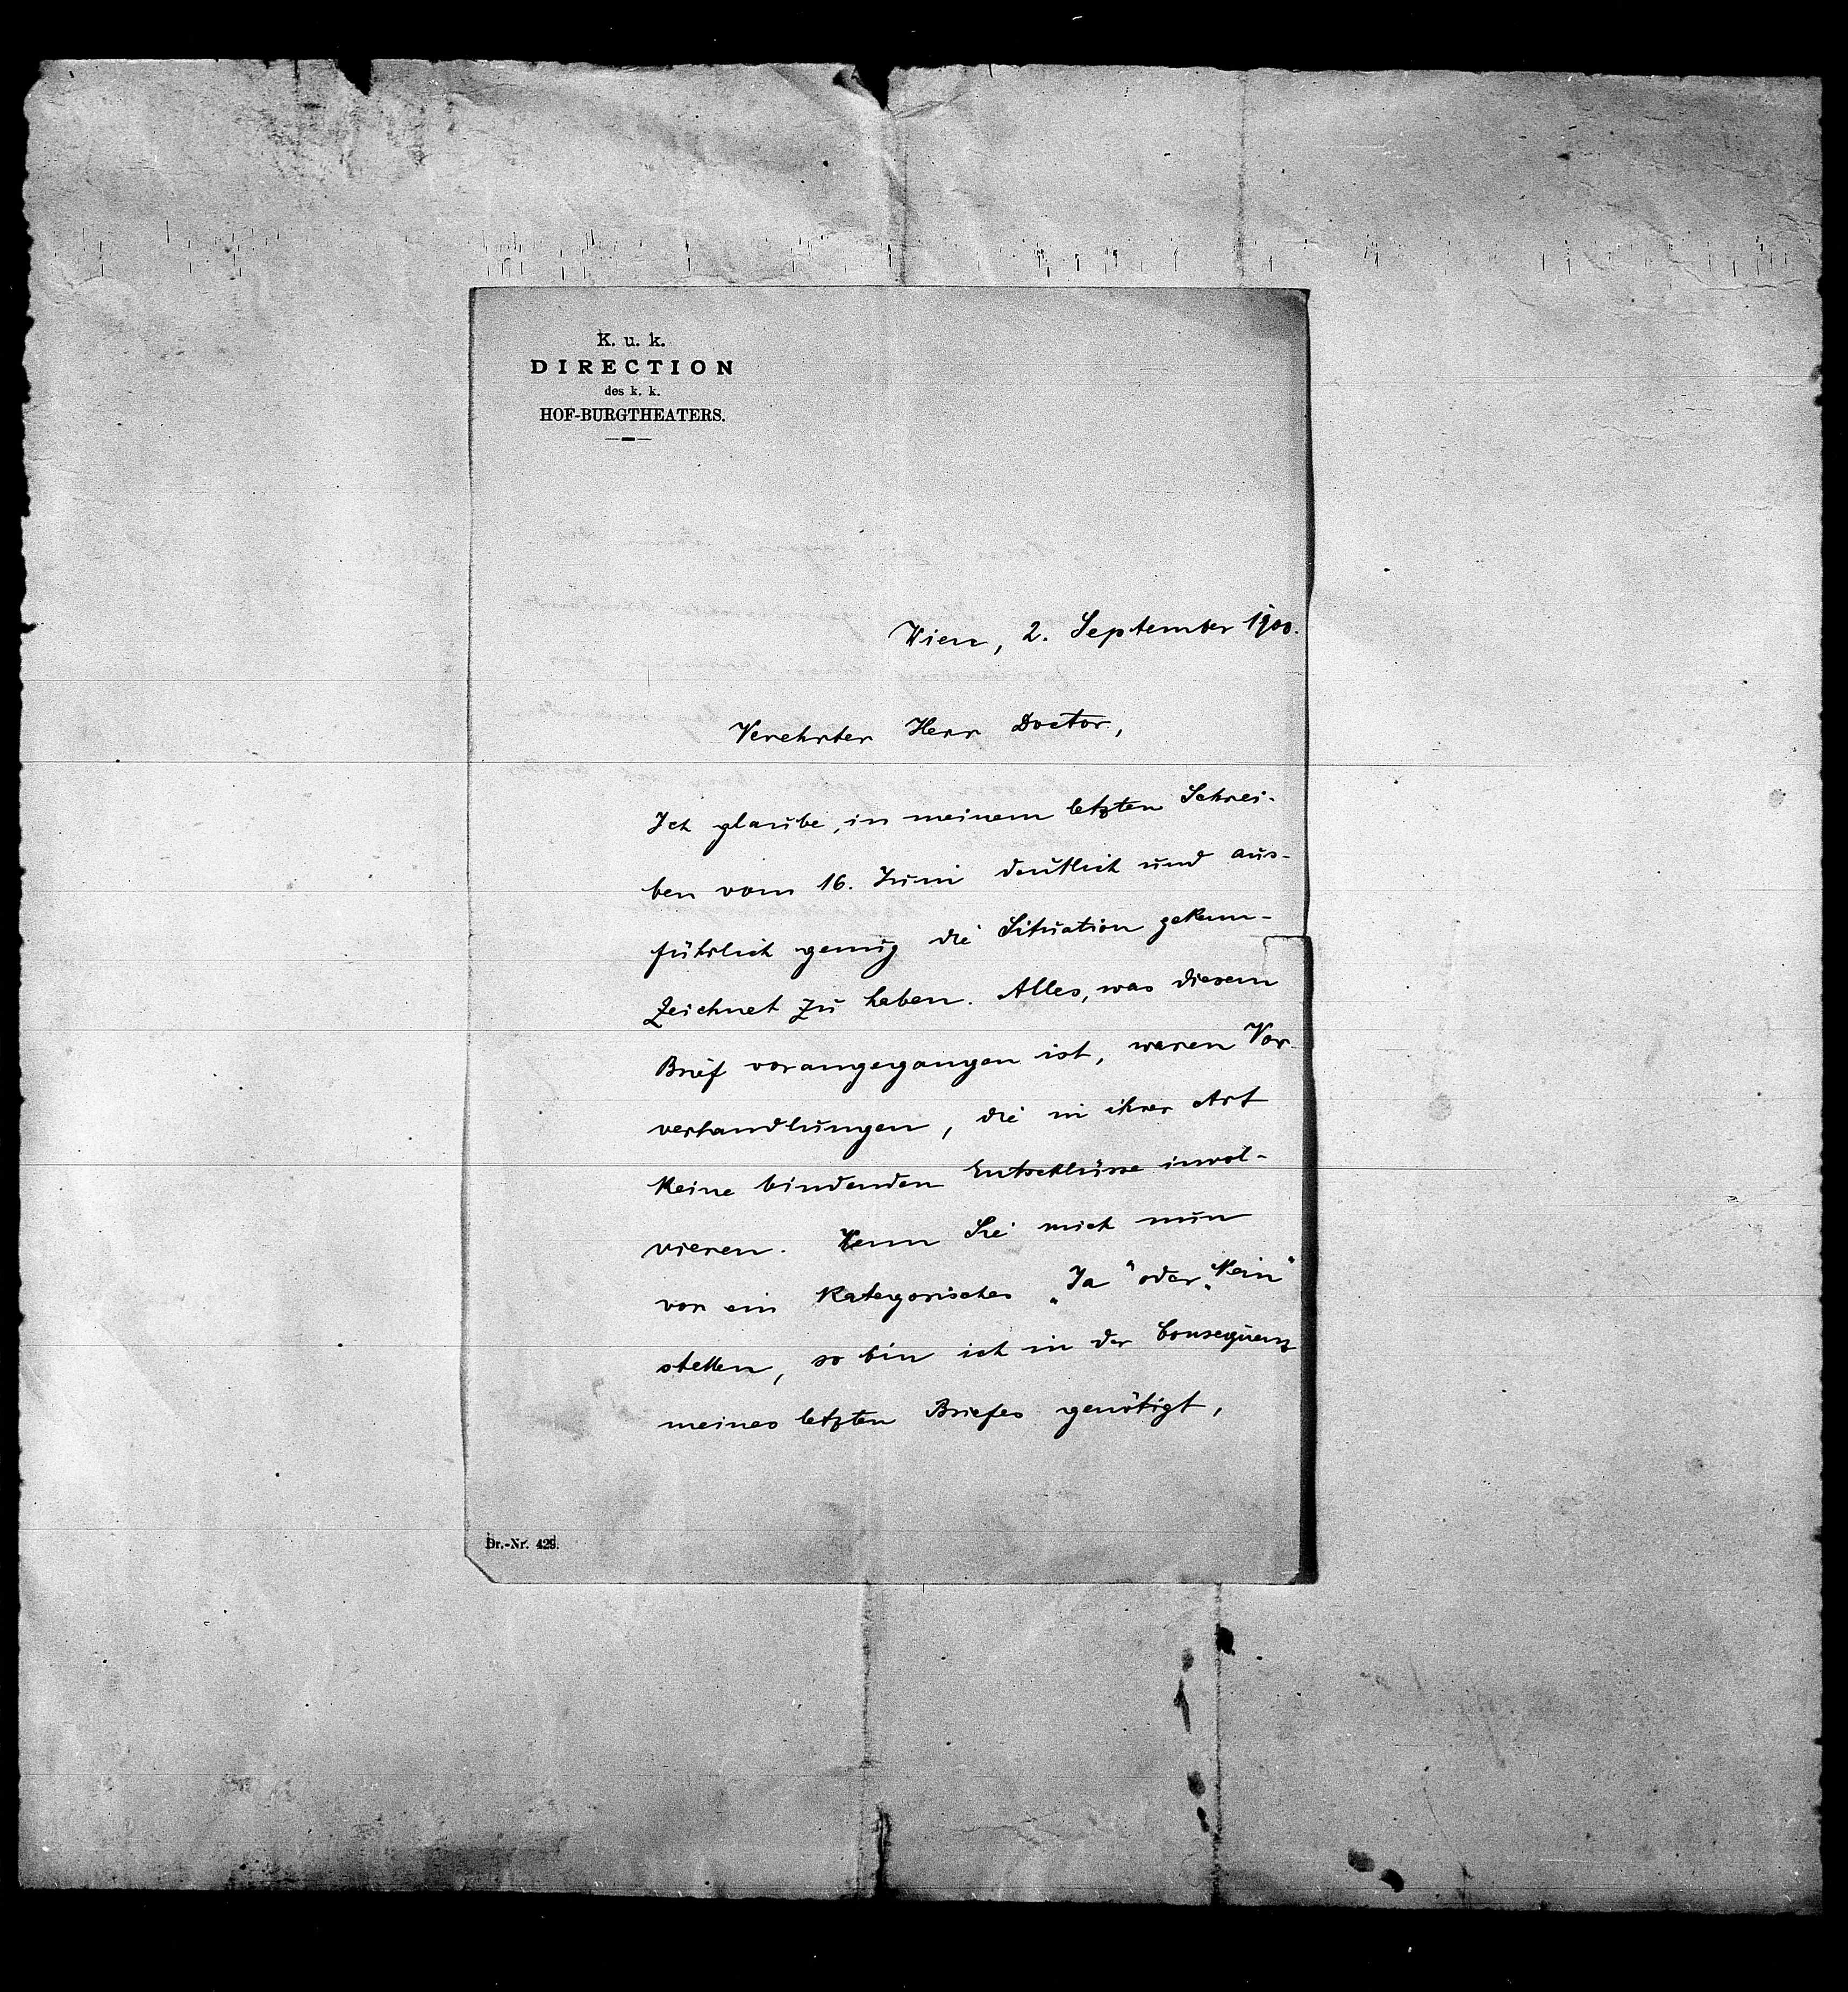 K. u. k.
DIRECTION
des k. k.
HOF-BURGTHEATERS.
Wien, 2. September 1900.
Verehrter Herr Doctor,
Ich glaube, in meinem letzten Schrei-
ben vom 16. Juni deutlich und aus-
führlich genug die Situation gekenn-
zeichnet zu haben. Alles, was diesem
Brief vorangegangen ist, waren Vor-
verhandlungen, die in ihrer Art
keine bindenden Entschlüsse invol-
vieren. Wenn Sie mich nun
vor ein kategorisches „Ja“ oder „Nein“
stellen, so bin ich in der Consequenz
meines letzten Briefes genötigt,
Dr.-Nr. 429.